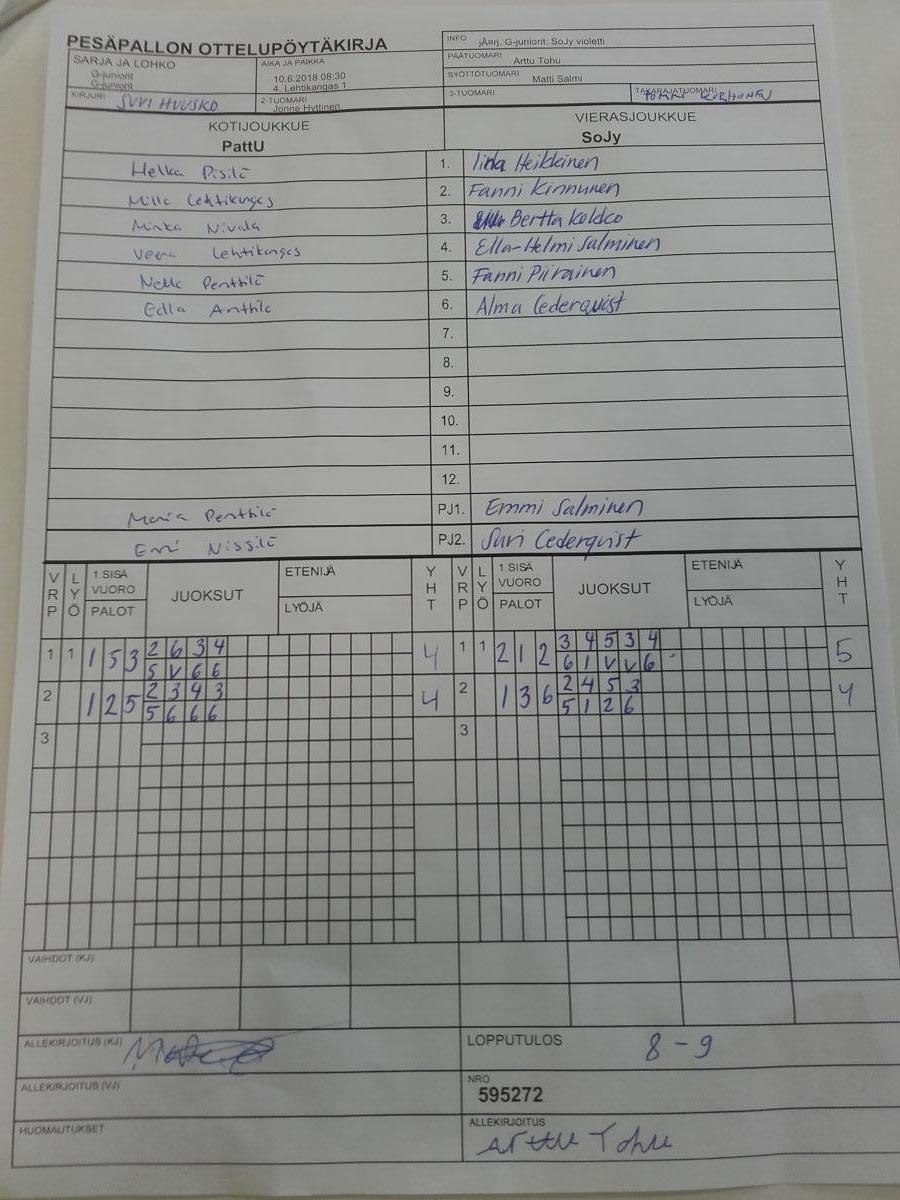 PESÄPALLON OTTELUPÖYTÄKIRJA
INFO jÄ¤rj. G-juniorit: SoJy violetti
SARJA JA LOHKO
G-juniorit
G-juniorit
AIKA JA PAIKKA
10.6.2018 08:30
4. Lehtikangas 1
PÄÄTUOMARI Arttu Tohu
SYÖTTÖTUOMARI Matti Salmi
KIRJURI SUVI HUUSKO
2-TUOMARI
Jonne Hyttinen
3-TUOMARI
TAKARAJATUOMARI
KOTIJOUKKUE
PattU
VIERASJOUKKUE
SoJy
Helka Pisilä 1. Iida Heikkinen
Milla Lehtikangas 2. Fanni Kinnunen
Minka Nivala 3. Bertta Kokko
Veera Lehtikangas 4. Ella-Helmi Salminen
Nella Penttilä 5. Fanni Piirainen
Edla Anttila 6. Alma Cederqvist
7.
8.
9.
10.
11.
12.
Maria Penttilä PJ1. Emmi Salminen
Emi Nissilä PJ2. Suvi Cederqvist
VRP LYÖ 1.SISÄ VUORO PALOT JUOKSUT ETENIJÄ LYÖJÄ YHT VRP LYÖ 1.SISÄ VUORO PALOT JUOKSUT ETENIJÄ LYÖJÄ YHT
1 1 1 5 3 2 6 3 4 4 1 1 2 1 2 3 4 5 3 4 5
5 V 6 6 6 1 V V 6
2 1 2 5 2 3 4 3 4 2 1 3 6 2 4 5 3 4
5 6 6 6 5 1 2 6
3 3
VAIHDOT (KJ)
VAIHDOT (VJ)
ALLEKIRJOITUS (KJ)
LOPPUTULOS 8 - 9
ALLEKIRJOITUS (VJ)
NRO
595272
HUOMAUTUKSET
ALLEKIRJOITUS
Arttu Tohu